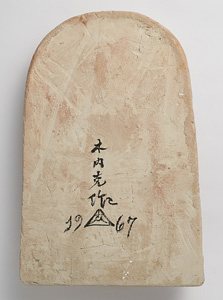 木内克作
1967